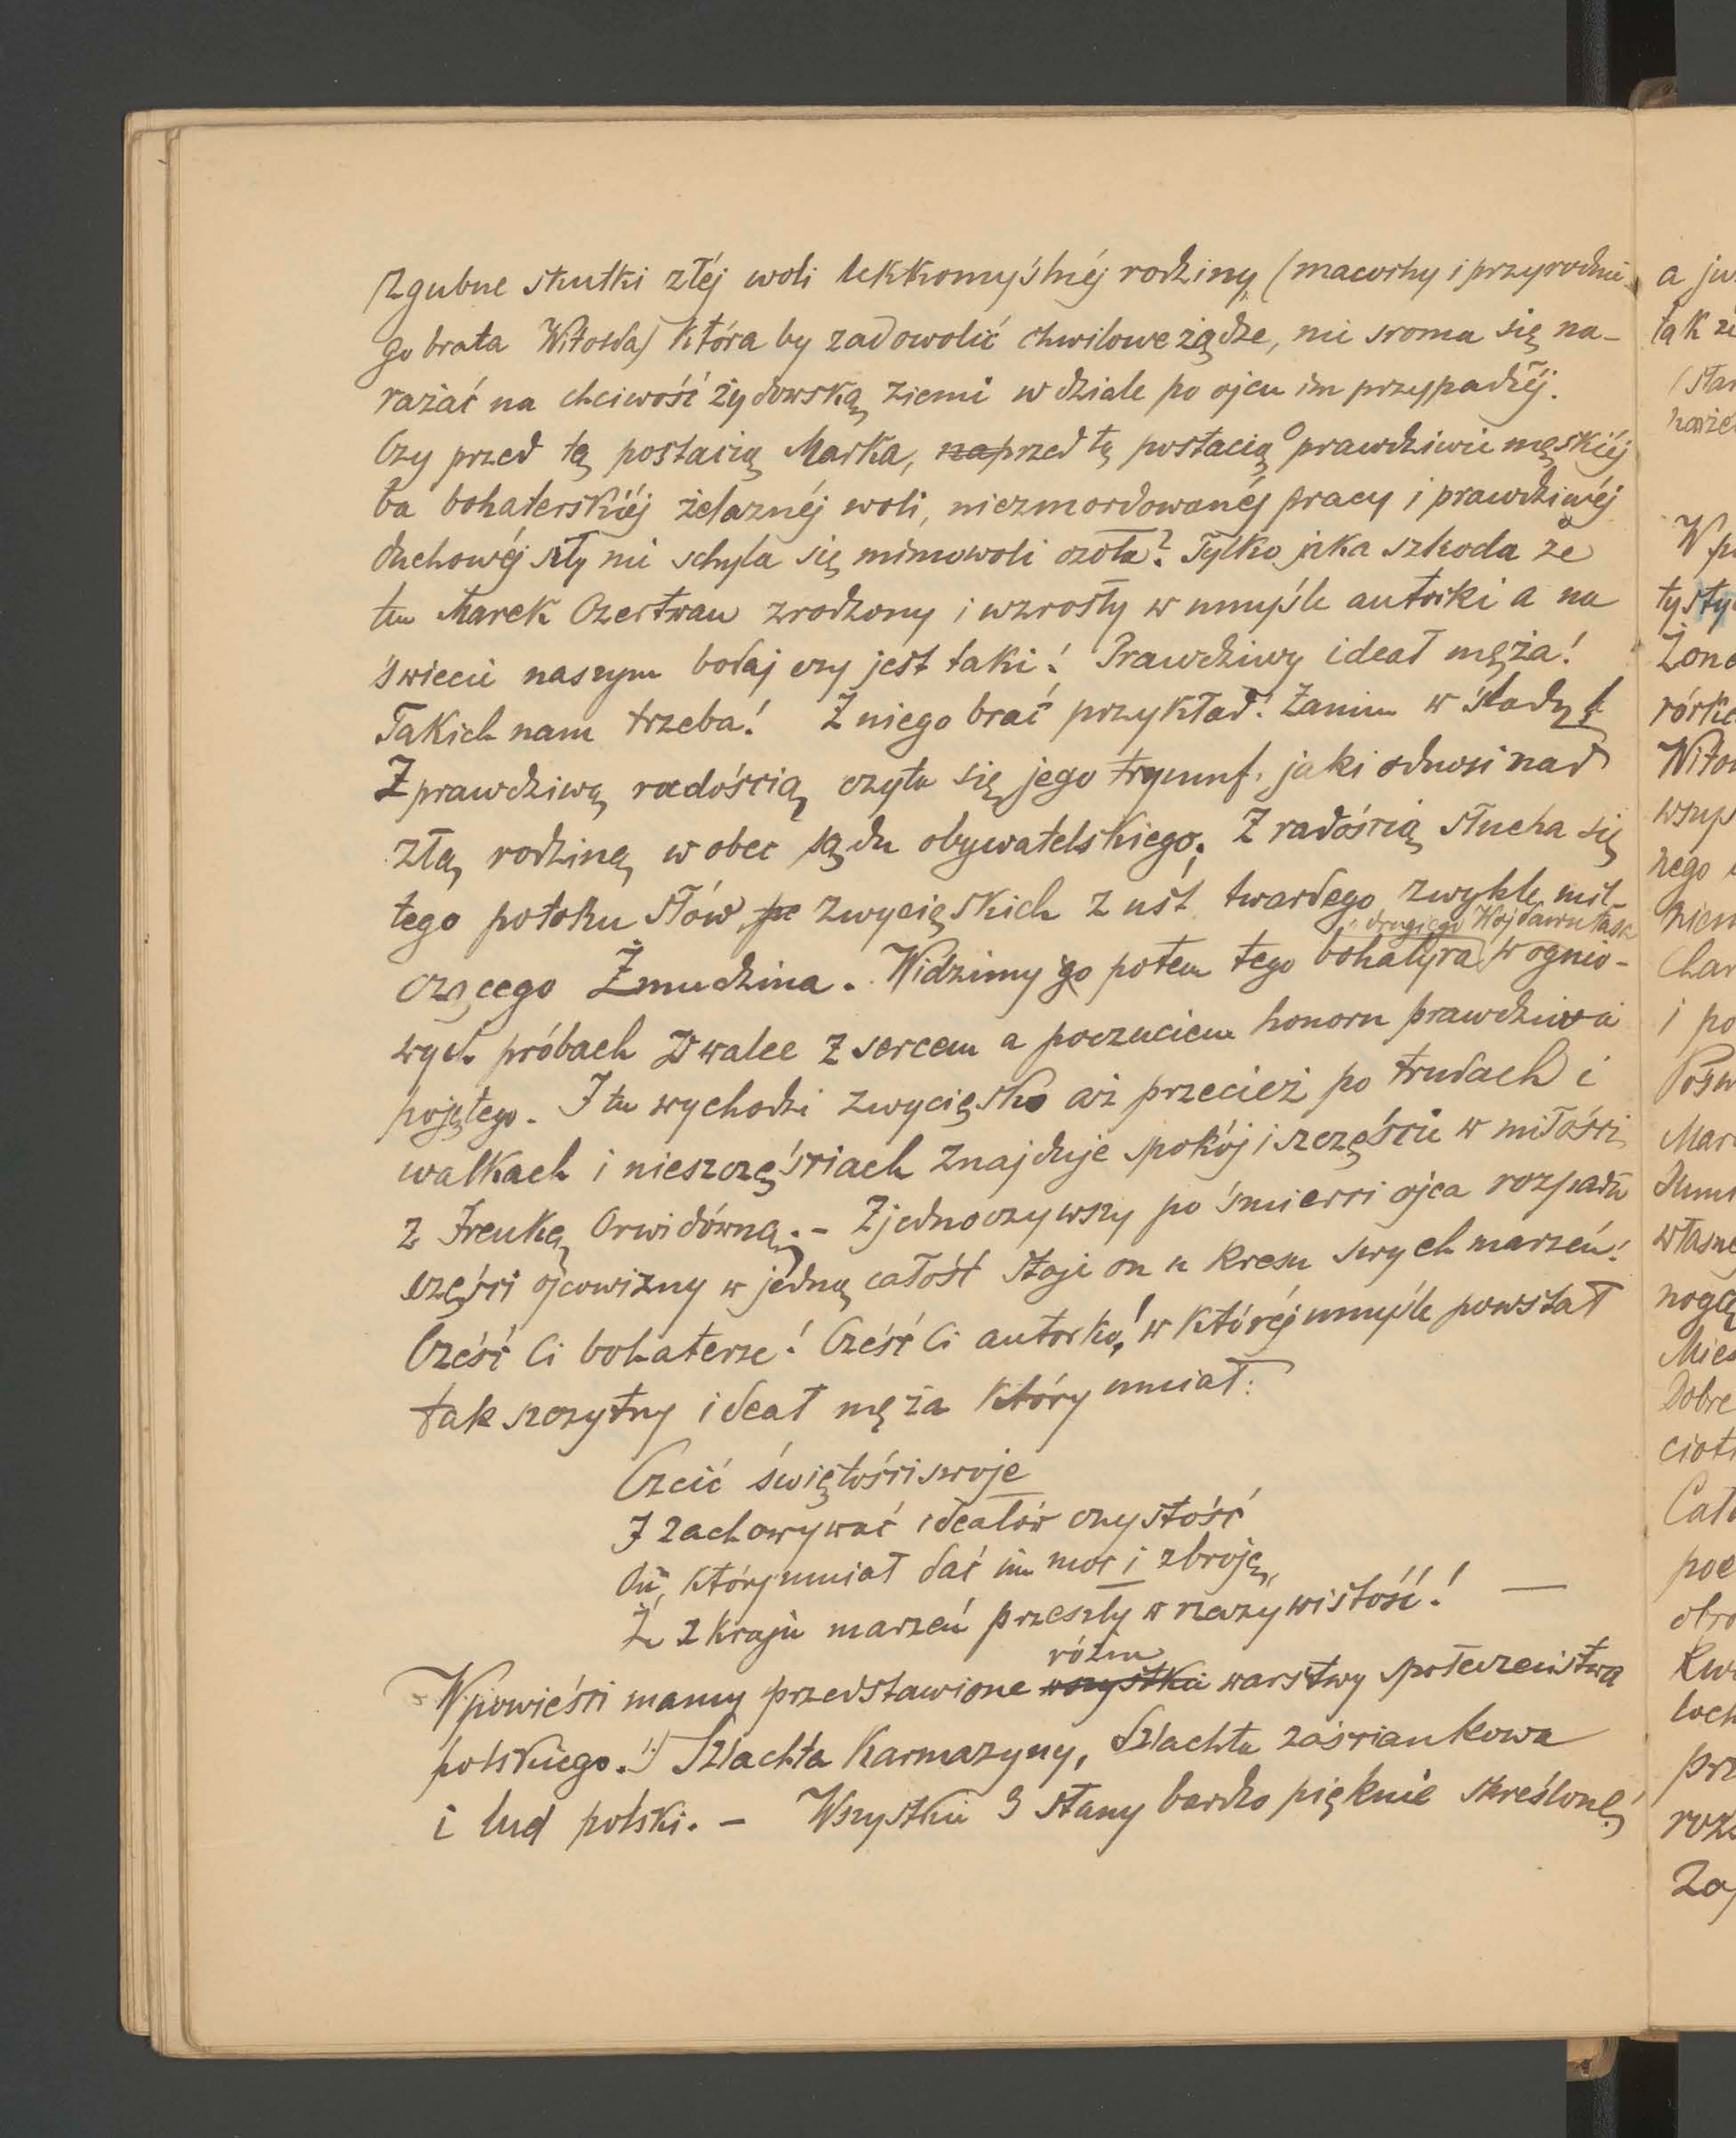 Zgubne skutki złéj woli lekkomyślnéj rodziny (macochy i przyrodnie-
go brata Witolda) która by zadowolić chwilowe żądze, nie sroma się na-
rażać na chciwość żydowską ziemi w dziale po ojcu im przypadłéj.
Czy przed tą postacią Marka, na przed tą postacią o prawdziwie męskiéj
ba bohaterskiéj żelaznéj woli, niezmordowanéj pracy i prawdziwéj
duchowéj siły nie schyla się mimowoli czoła? Tylko jaka szkoda że
ten Marek Czertwan zrodzony i wzrosły w umyśle autorki a na
świecie naszym bodaj czy jest taki! Prawdziwy ideał męża!
Takich nam trzeba! Z niego brać przykład! Za nim w ślady!
Z prawdziwą radością czyta się jego tryumf, jaki odnosi nad
złą rodziną w obec sądu obywatelskiego. Z radością słucha się
tego potoku słów, pe zwycięskich z ust twardego zwykle mil-
czącego Żmudzina. Widzimy go potem tego bohatyra w ognio-
drugiego Wojdawutasa
wych próbach w walce z sercem a poczuciem honoru prawdziwie
pojętego. I tu wychodzi zwycięsko aż przecież po trudach i
walkach i nieszczęściach znajduje spokój i szczęście w miłości
z Irenką Orwidówną. – Zjednoczywszy po śmierci ojca rozpadłe
części ojcowizny w jedną całość staje on u kresu swych marzeń!
Cześć Ci bohaterze! Cześć Ci autorko! w któréj umyśle powstał
tak szczytny ideał męża który umiał:
Czcić świętości swoje
I zachowywać ideałów czystość
On, który umiał dać im moc i zbroję,
Że z kraju marzeń przeszły w rzeczywistość! —
różne
W powieści mamy przedstawione wszystkie warstwy społeczeństwa
polskiego. Szlachta Karmazyny, Szlachta zaściankowa
i lud polski. – Wszystkie 3 stany bardzo pięknie skreślone
a ju
tak
W p
tysty
Żone
rórke
Witol
wsup
nego
niem
Char
i po
Mar
własne
nogą
Dobre
Cał
poe
obro
prz